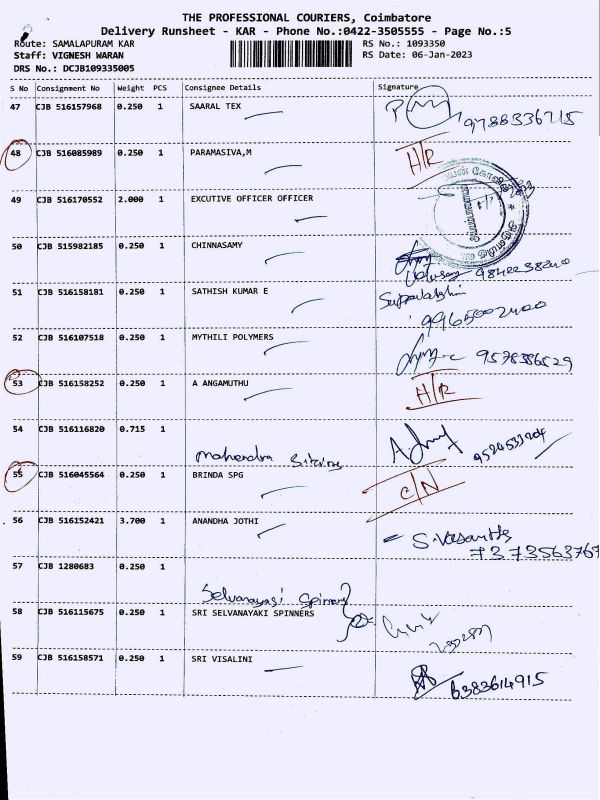 THE PROFESSIONAL COURIERS, Coimbatore
Delivery Runsheet - KAR - Phone No.:0422-3505555 - Page No.:5
Route: SAMALAPURAM KAR
RS No.: 1093350
Staff: VIGNESH WARAN
RS Date: 06-Jan-2023
DRS No.: DCJB109335005
S No Consignment No Weight PCS Consignee Details Signature
47 CJB 516157968 0.250 1 SAARAL TEX
9788336715
48 CJB 516085989 0.250 1 PARAMASIVA,M H/R
49 CJB 516170552 2.000 1 EXCUTIVE OFFICER OFFICER
50 CJB 515982185 0.250 1 CHINNASAMY
51 CJB 516158181 0.250 1 SATHISH KUMAR E
52 CJB 516107518 0.250 1 MYTHILI POLYMERS
9578386529
53 CJB 516158252 0.250 1 A ANGAMUTHU H/R
54 CJB 516116820 0.715 1
Mahendra
55 CJB 516045564 0.250 1 BRINDA SPG C/N
56 CJB 516152421 3.700 1 ANANDHA JOTHI
7373563767
57 CJB 1280683 0.250 1
Spinners
58 CJB 516115675 0.250 1 SRI SELVANAYAKI SPINNERS
59 CJB 516158571 0.250 1 SRI VISALINI
6383614915